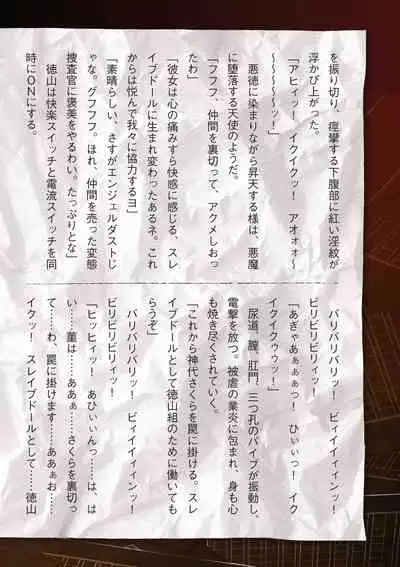 を振り切り、痙攣する下腹部に紅い淫紋が
浮かび上がった。
「アヒィッ！　イクイクッ！　アオォォ〜
〜〜〜〜〜ッ！」
　悪徳に染まりながら昇天する様は、悪魔
に堕落する天使のようだ。
「フフフ、仲間を裏切って、アクメしおっ
たわ」
「彼女は心の痛みすら快感に感じる、スレ
イブドールに生まれ変わったあるネ。これ
からは悦んで我々に協力するヨ」
「素晴らしい、さすがエンジェルダストじ
ゃな。グフフフ。ほれ、仲間を売った変態
捜査官に褒美をやるわい。たっぷりとな」
　徳山は快楽スイッチと電流スイッチを同
時にONにする。
　バリバリバリッ！　ビィイイィィンッ！
ビリビリビリィッ！
「あぎゃあぁぁぁっ！　ひぃいっ！　イク
イクイクゥゥッ！」
　尿道、膣、肛門、三つ孔のバイブが振動し、
電撃を放つ。被虐の業炎に包まれ、身も心
も焼き尽くされていく。
「これから神代さくらを罠に掛ける。スレ
イブドールとして徳山組のために働いても
らうぞ」
　バリバリバリッ！　ビィイイィィンッ！
ビリビリビリィッ！
「ヒッヒィッ！　あひぃいんっ……は、は
い……菫は……ああぁ……さくらを裏切っ
て……わ、罠に掛けます……ああぁぁお……
イクッ！　スレイブドールとして……徳山